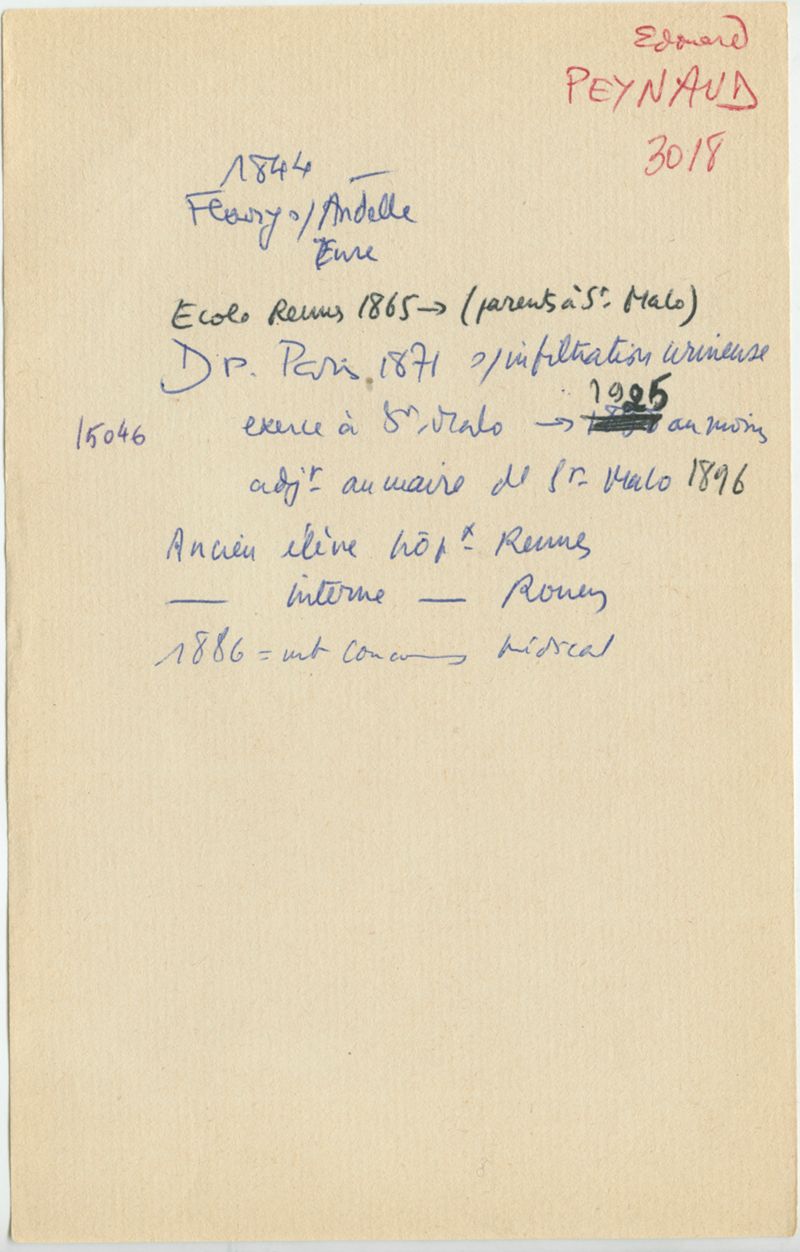 Edouard
PEYNAUD
3018
1844
Fleury s/Andelle
Eure
Ecole Rennes 1865 → (parents à St. Malo)
Dr. Paris 1871 s/infiltration urineuse
1925
15046 exerce à St. Malo → au moins
adjt au maire de St. Malo 1896
Ancien élève hôpx Rennes
— interne — Rouen
1886 = mb Concours Médical